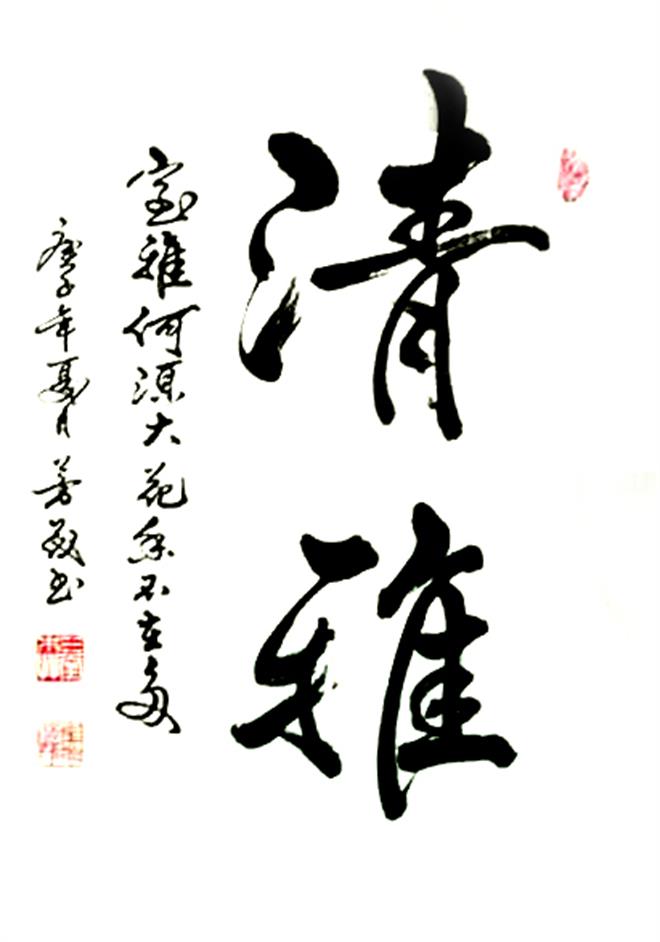 清雅
室雅何须大花香不在多
庚子年夏月芳敏书